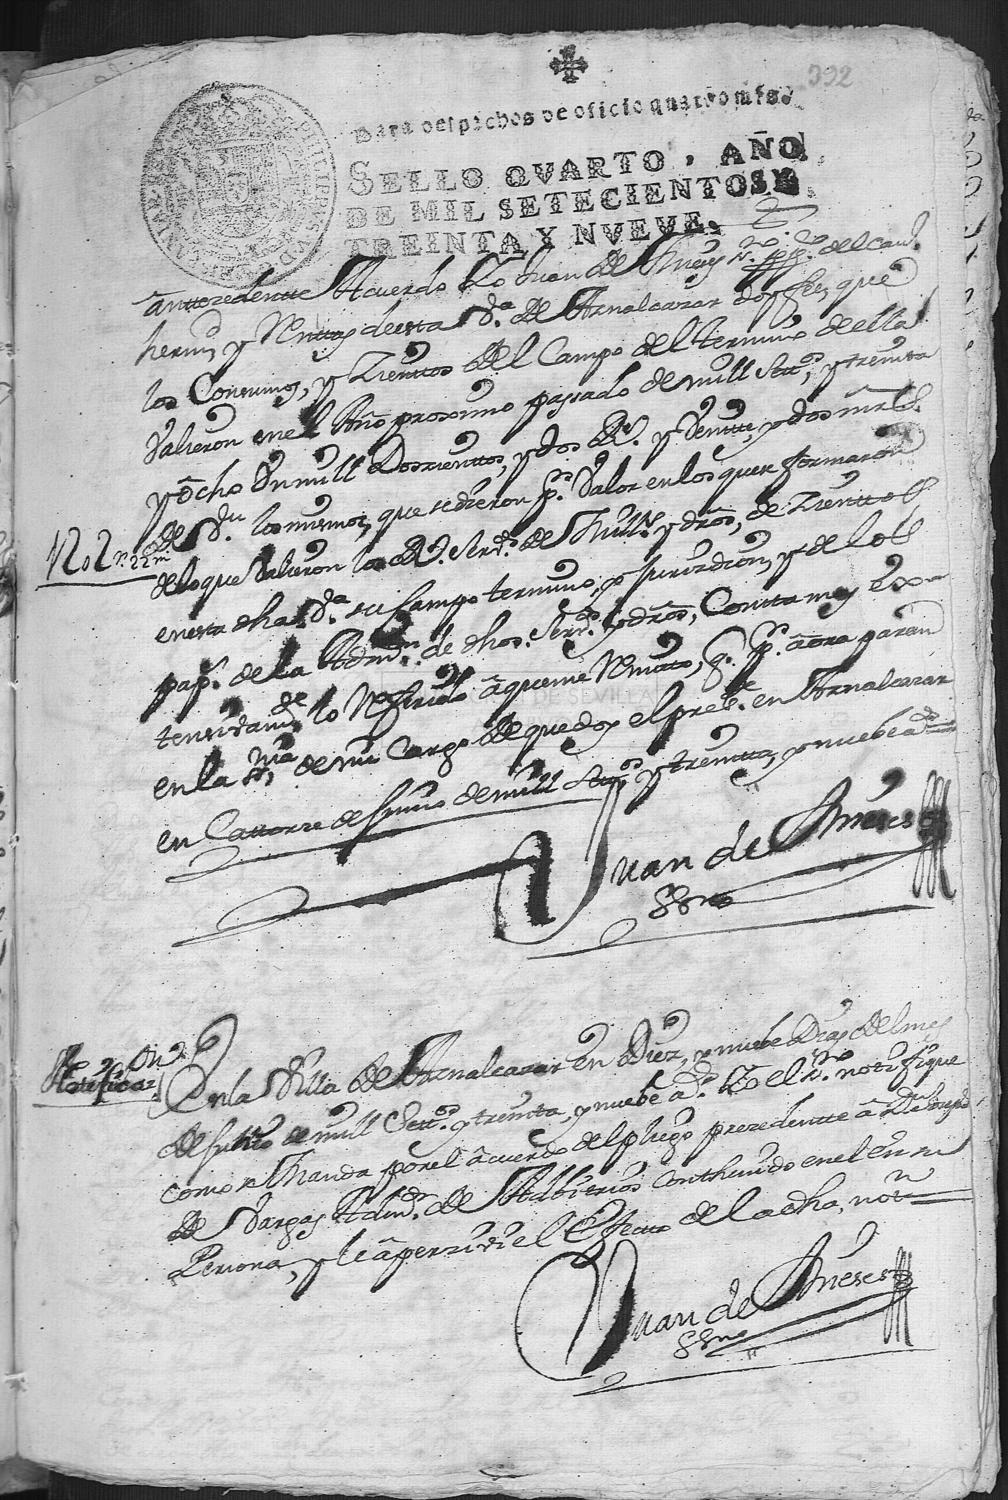 332
Para despachos de oficio quatro mrs.
SELLO QVARTO, AÑO
DE MIL SETECIENTOS Y
TREINTA Y NVEVE.
anttezedentte Acuerdo Yo Juan de del cau.
y Renttas de esta Va. de Aznalcazar doy fee que
los Consumos, y Zienttos del Campo del termino de ella
Valieron en el Año proximo pasado de mill Settos. y treintta
y ocho Un mill Doszienttos, y dos Rs. y Veintte, y dos mrs.
de Vn. los mismos, que se dieron pr. Valor en los que se formaron
1202 rs. 22 ms.
de lo que Valieron los Rs. Servos. de Mills. y dros. de Zienttos
en esta dha. Va. su Campo termino, y jurisdizion, y de los
paps. de la Admon. de dhos. Servos. y dros. Constta mas ex
tensivamte. lo Referido a que me Remitto, q. pr. aora paran
en la Ssna. de mi Cargo de que doy el prestte. en Aznalcazar
en Cattorze de Junio de mill Settos. y treintta, y nuebe as.
Juan de
SSno
Notificazon.
En la Villa de Aznalcazar en Diez, y nuebe Dias del mes
de Junio de mill Settos. y treintta, y nuebe as. Yo el Sno. notifique
como se Manda por el acuerdo del pliego prezedentte a Dn.
de Vargas Admor. de Adbitrios conthenido en el en su
Persona, y le aperzivi el Efectto de la dha. notn.
Juan de
SSno